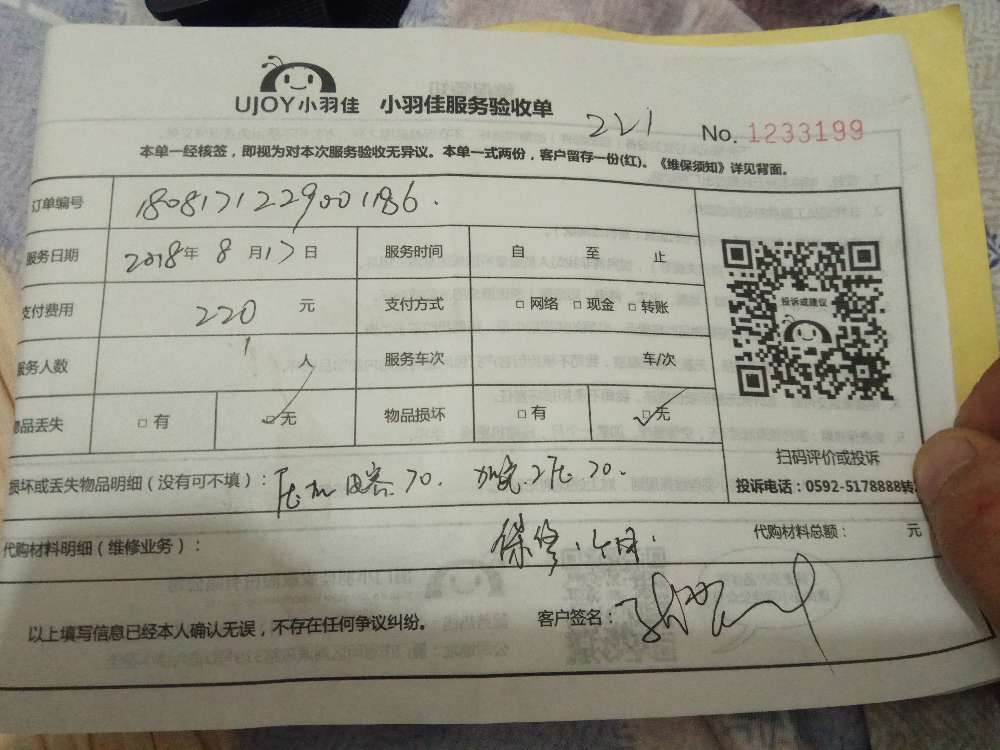 UJOY小羽佳 小羽佳服务验收单
221 No. 1233199
本单一经核签，即视为对本次服务验收无异议。本单一式两份，客户留存一份(红)。《维保须知》详见背面。
订单编号 1808171229001186.
服务日期 2018年 8月17日 服务时间 自 至 止
支付费用 220 元 支付方式 □ 网络 □ 现金 □ 转账
投诉或建议
服务人数 1 人 服务车次 车/次
物品丢失 □ 有 ☑ 无 物品损坏 □ 有 ☑ 无
扫码评价或投诉
投诉电话：0592-5178888转
损坏或丢失物品明细（没有可不填）： 电容 70.
代购材料明细（维修业务）： 保修 个月. 代购材料总额： 元
以上填写信息已经本人确认无误，不存在任何争议纠纷。 客户签名：